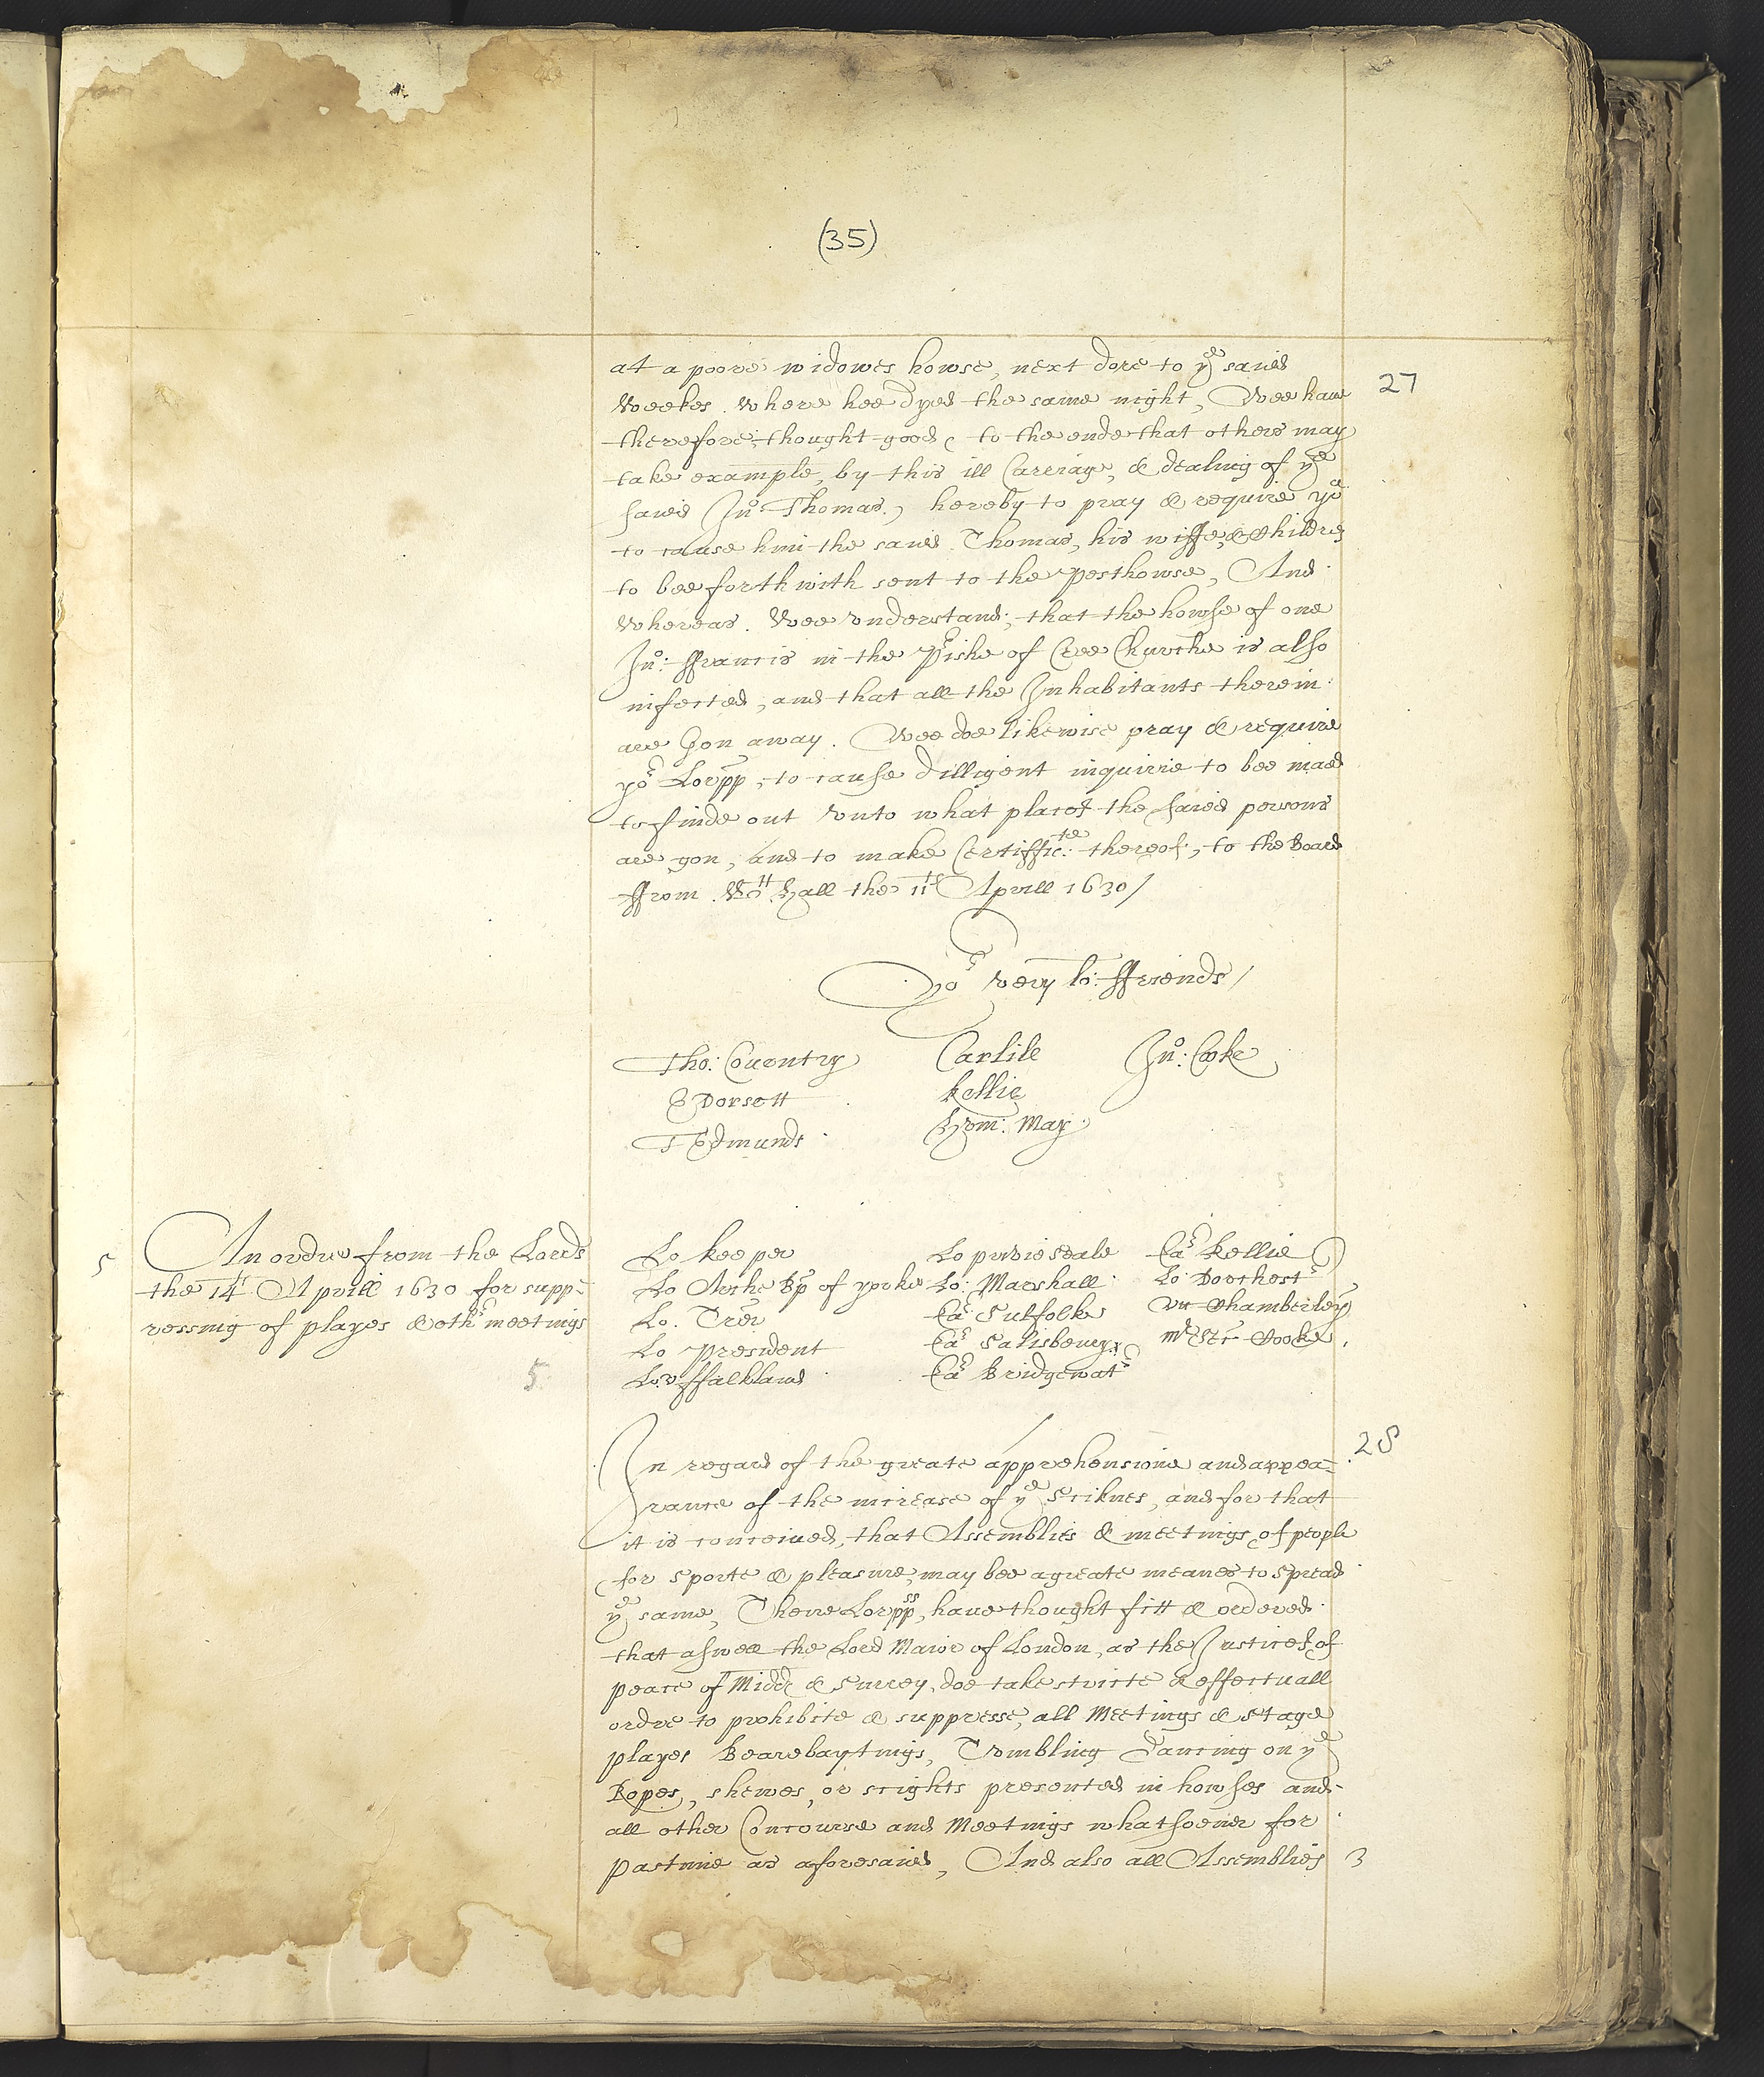 (35)
at a poore widowes howse, next dore to ye saied
Weekes. Where hee dyed the same night, Wee haue
therefore thought good, to the ende that others may
take example, by this ill Carriage, & dealing of ye
saied Jno: Thomas, hereby to pray & require yo
to cause him the saied Thomas, his wiffe, & Childrē
to bee forthwith sent to the Pesthowse, And
Whereas. Wee vnderstand, that the howse of one
Jno: ffrancis in the Pishe of Cree Churche is also
infected, and that all the Inhabitants therein
are gon away. Wee doe likewise pray & require
yor Lorpp, to cause dilligent inquirie to bee maed
to finde out vnto what places the saied persons
are gon, and to make Certifficte: thereof, to the Board
ffrom Whtt hall the 11th Aprill 1630/
27
Yor very lo: ffriends/
Tho: Couentry Carlile Jno: Coke
E Dorsett Kellie
T Edmunds Hvm: May
5
An ordre from the Lords
the 14t Aprill 1630 for supp-
ressing of playes & othr meetings
5
Lo keeper Lo privie seale Ea: Kellie
Lo Arche Bp of yorke Lo: Marshall Lo: Dorchestr
Lo. Trēr Ea: Suffolke Vic Chamberleyn
Lo President Ea: Salisbewry Mr Secr Cooke
Lo: ffalkland Ea: Bridgewatr
28
In regard of the greate apprehensione and appea-
rance of the increase of ye Sciknes, and for that
it is conceiued, that Assemblies & meetings of people
for sporte & pleasure, may bee a greate meanes to spread
ye same, Theire Lorppss, haue thought fitt & ordered
that aswell the Lord Maior of London, as the Justices of
peace of Midd & Surrey, doe take stricte & effectuall
ordre to prohibite & suppresse, all Meetings & stage
playes Bearebaytings, Tvmbling Dancing on ye
Ropes, shewes, or scights presented in howses and
all other Concourse and Meetings whatsoeuer for
pastime as aforesaied, And also all Assemblies 3